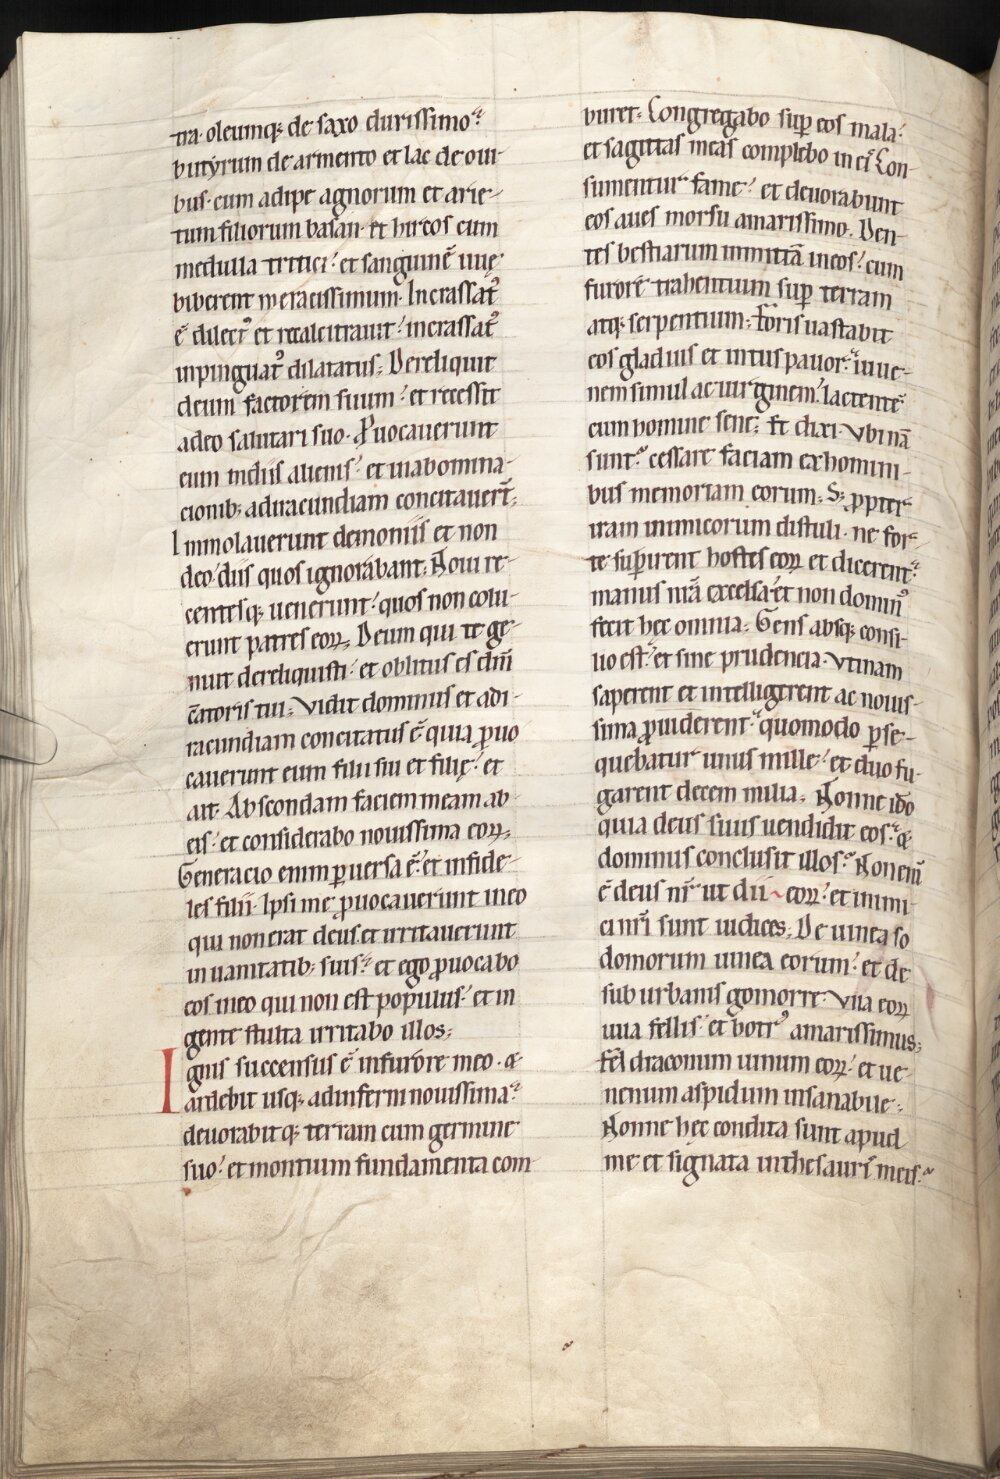 tra· oleumq; de saxo durissimo.
butyrum de armento et lac de oui-
bus· cum adipe agnorum et arie-
tum filiorum basan· et hircos cum
medulla tritici· et sanguinē uuę
biberent meracissimum· Incrassat᷒
ē dilect᷒ et recalcitrauit· incrassat᷒
inpinguat᷒ dilatatus; Dereliquit
deum factorem suum· et recessit
a deo salutari suo· Ꝓuocauerunt
eum in diis alienis· et in abomina-
cionib; ad iracundiam concitauerт̄;
Immolauerunt demoniis et non
deo· diis quos ignorabant; Noui re-
centesq; uenerunt· quos non colu-
erunt patres eoꝝ; Deum qui te ge-
nuit dereliquisti· et oblitus es dn̄i
c̄atoris tui; Vidit dominus et ad i-
racundiam concitatus ē quia ꝓuo
cauerunt eum filii sui et filię· et
ait· Abscondam faciem meam ab
eis· et considerabo nouissima eoꝝ;
Generacio enim ꝑuersa ē· et infide-
les filii· Ipsi me ꝓuocauerunt in eo
qui non erat deus· et irritauerunt
in uanitatib; suis· et ego ꝓuocabo
eos in eo qui non est populus· et in
gente stulta irritabo illos;
Ignis succensus ē in furore meo· &
ardebit usq; ad inferni nouissima·
deuorabitq; terram cum germine
suo· et montium fundamenta com
buret; Congregabo suꝑ eos mala·
et sagittas meas complebo in eis̄ Con-
sumentur fame· et deuorabunt
eos aues morsu amarissimo· Den-
tes bestiarum inmittā in eos· cum
furore trahentium suꝑ terram
atq; serpentium; Foris uastabit
eos gladius et intus pauor· iuue-
nem simul ac uirginem· lactentē
cum homine sene; Et dixi· Vbi nā
sunt· cessare faciam ex homini-
bus memoriam eorum; S; ꝓpter
iram inimicorum distuli· ne for-
te suꝑbirent hostes eoꝝ et dicerent·
manus nr̄a excelsa· et non domin᷒
fecit hęc omnia; Gens absq; consi-
lio est· et sine prudencia· Vtinam
saperent et intelligerent ac nouis-
sima ꝓuiderent· quomodo ꝑse-
quebatur unus mille· et duo fu-
garent decem milia; Nonne id̄o
quia deus suus uendidit eos· &
dominus conclusit illos· Non enī
ē deus nr̄ ut dii eoꝝ· et inimi-
ci nr̄i sunt iudices; De uinea so
domorum uinea eorum· et de
suburbanis gomorre· Vua eoꝝ
uua fellis· et botr᷒ amarissimus;
Fel draconum uinum eoꝝ· et ue-
nenum aspidum insanabile;
Nonne hec condita sunt apud
me et signata in thesauris meis·